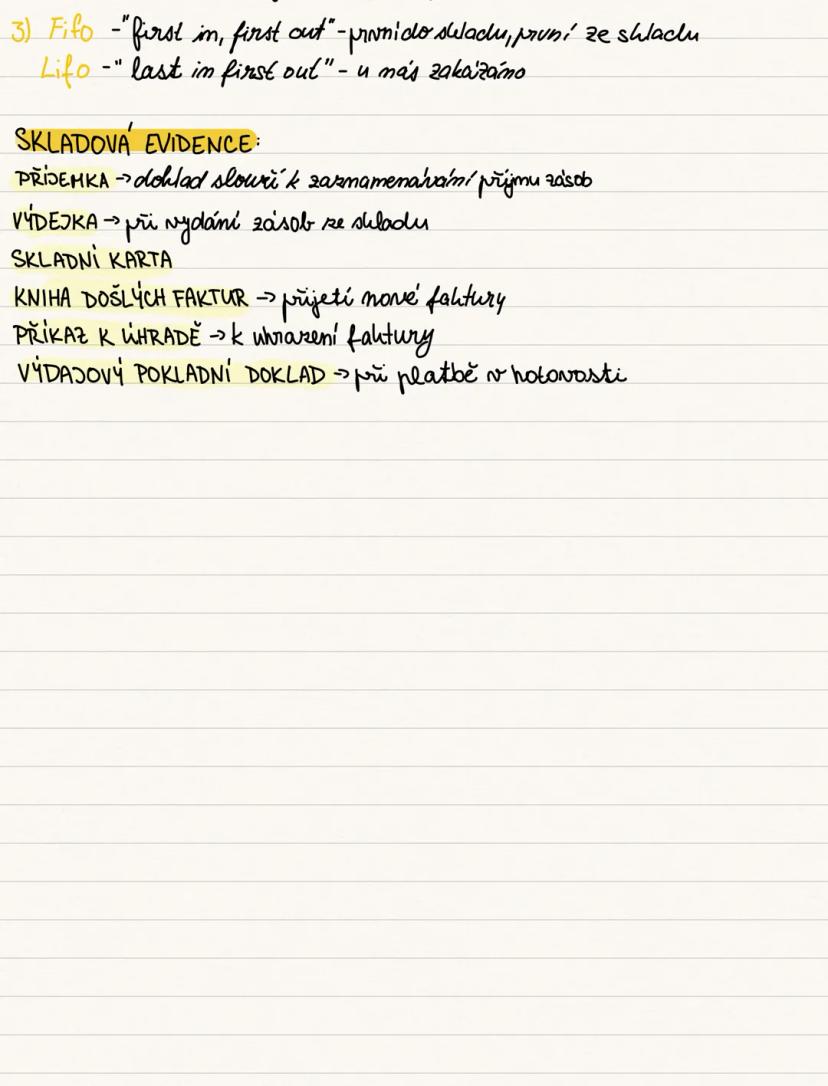 3) Fifo - "first in, first out" - první do skladu, první ze skladu
Lifo - "last in first out" - u nás zakázáno
SKLADOVÁ EVIDENCE:
PŘÍJEMKA → doklad slouží k zaznamenávání příjmu zásob
VÝDEJKA → při vydání zásob ze skladu
SKLADNÍ KARTA
KNIHA DOŠLÝCH FAKTUR → přijetí nové faktury
PŘÍKAZ K ÚHRADĚ → k uhrazení faktury
VÝDAJOVÝ POKLADNÍ DOKLAD → při platbě v hotovosti